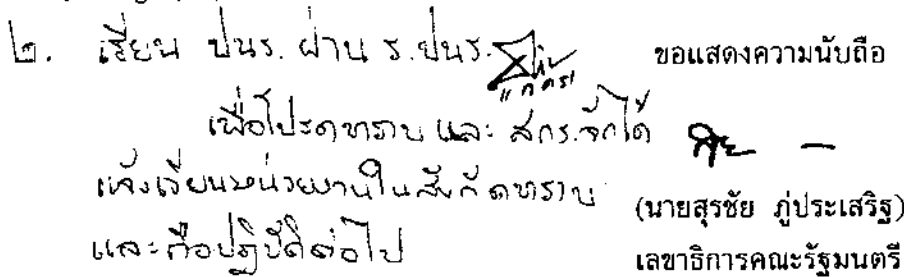 ๒. เรียน ปนร. ผ่าน ร.ปนร.
เพื่อโปรดทราบ และ สกร. จักได้
แจ้งเวียนหน่วยงานในสังกัดทราบ
และถือปฏิบัติต่อไป
ขอแสดงความนับถือ
(นายสุรชัย ภู่ประเสริฐ)
เลขาธิการคณะรัฐมนตรี